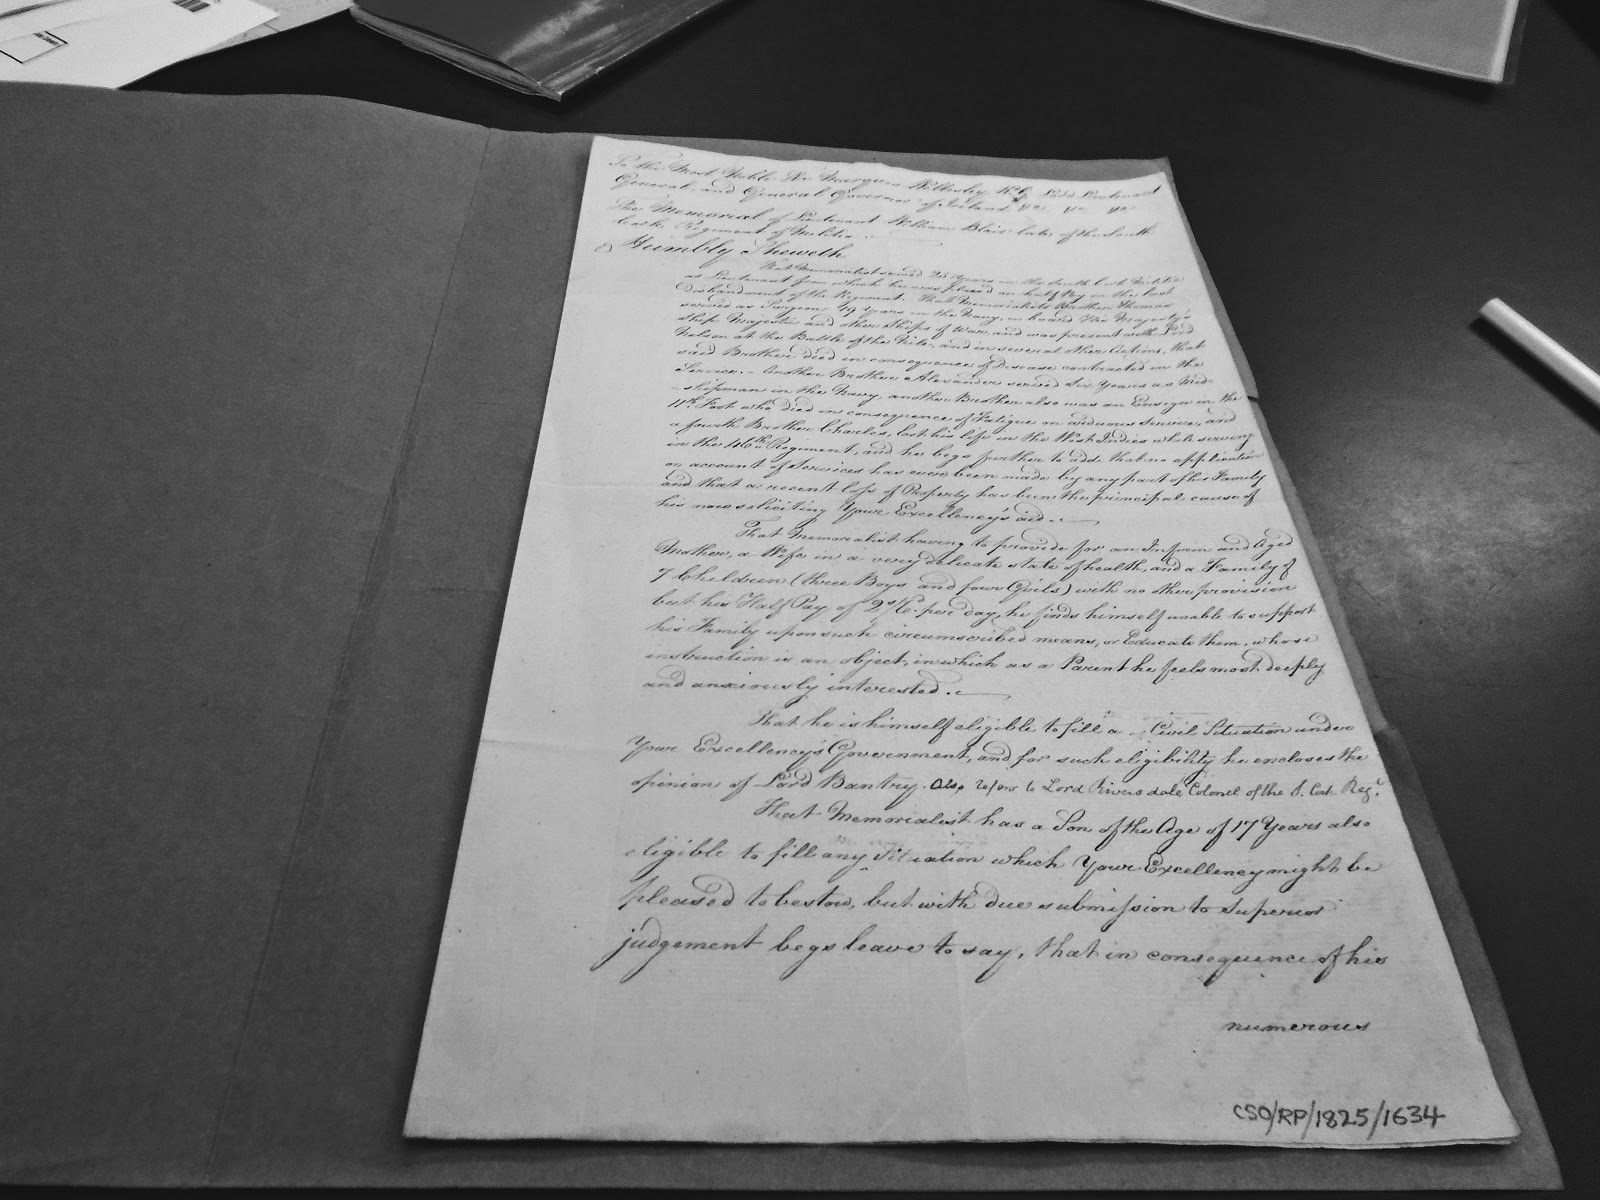 To the Most Noble The Marquess Wellesley K.G. Lord Lieutenant
General and General Governor of Ireland &c. &c. &c.
The Memorial of Lieutenant William Blair late of the South
Cork Regiment of Militia.
Humbly Sheweth
That Memorialist served 25 Years in the South Cork Militia
as Lieutenant from which he was placed on half Pay on the last
disbandment of the Regiment. That Memorialists Brother Thomas
served as Surgeon 19 Years in the Navy, on board His Majesty's
Ship Majestic and other Ships of War, and was present with Lord
Nelson at the Battle of the Nile, and in several other Actions, that
said Brother died in consequence of Disease contracted in the
Service. Another Brother Alexander served Six Years as Mid-
-shipman in the Navy, another Brother also was an Ensign in the
11th Foot who died in consequence of Fatigue on arduous Service, and
a fourth Brother Charles, lost his life in the West Indies while serving
in the 46th Regiment, and he begs further to add that no application
on account of Services has ever been made by any part of his Family
and that a recent Loss of Property has been the principal cause of
his now soliciting Your Excellency's aid.
That Memorialist having to provide for an Infirm and Aged
Mother, a Wife in a very delicate state of health, and a Family of
7 Children (three Boys and four Girls) with no other provision
but his Half Pay of per day, he finds himself unable to support
his Family upon such circumscribed means, or Educate them, whose
instruction is an object, in which as a Parent he feels most deeply
and anxiously interested.
That he is himself eligible to fill a Civil Situation under
Your Excellency's Government, and for such eligibility he encloses the
opinion of Lord Bantry. Also refers to Lord Riversdale Colonel of the S. Cork Regt.
That Memorialist has a Son of the Age of 17 Years also
eligible to fill any Situation which Your Excellency might be
pleased to bestow, but with due submission to Superior
judgement begs leave to say, that in consequence of his
numerous
CSO/RP/1825/1634